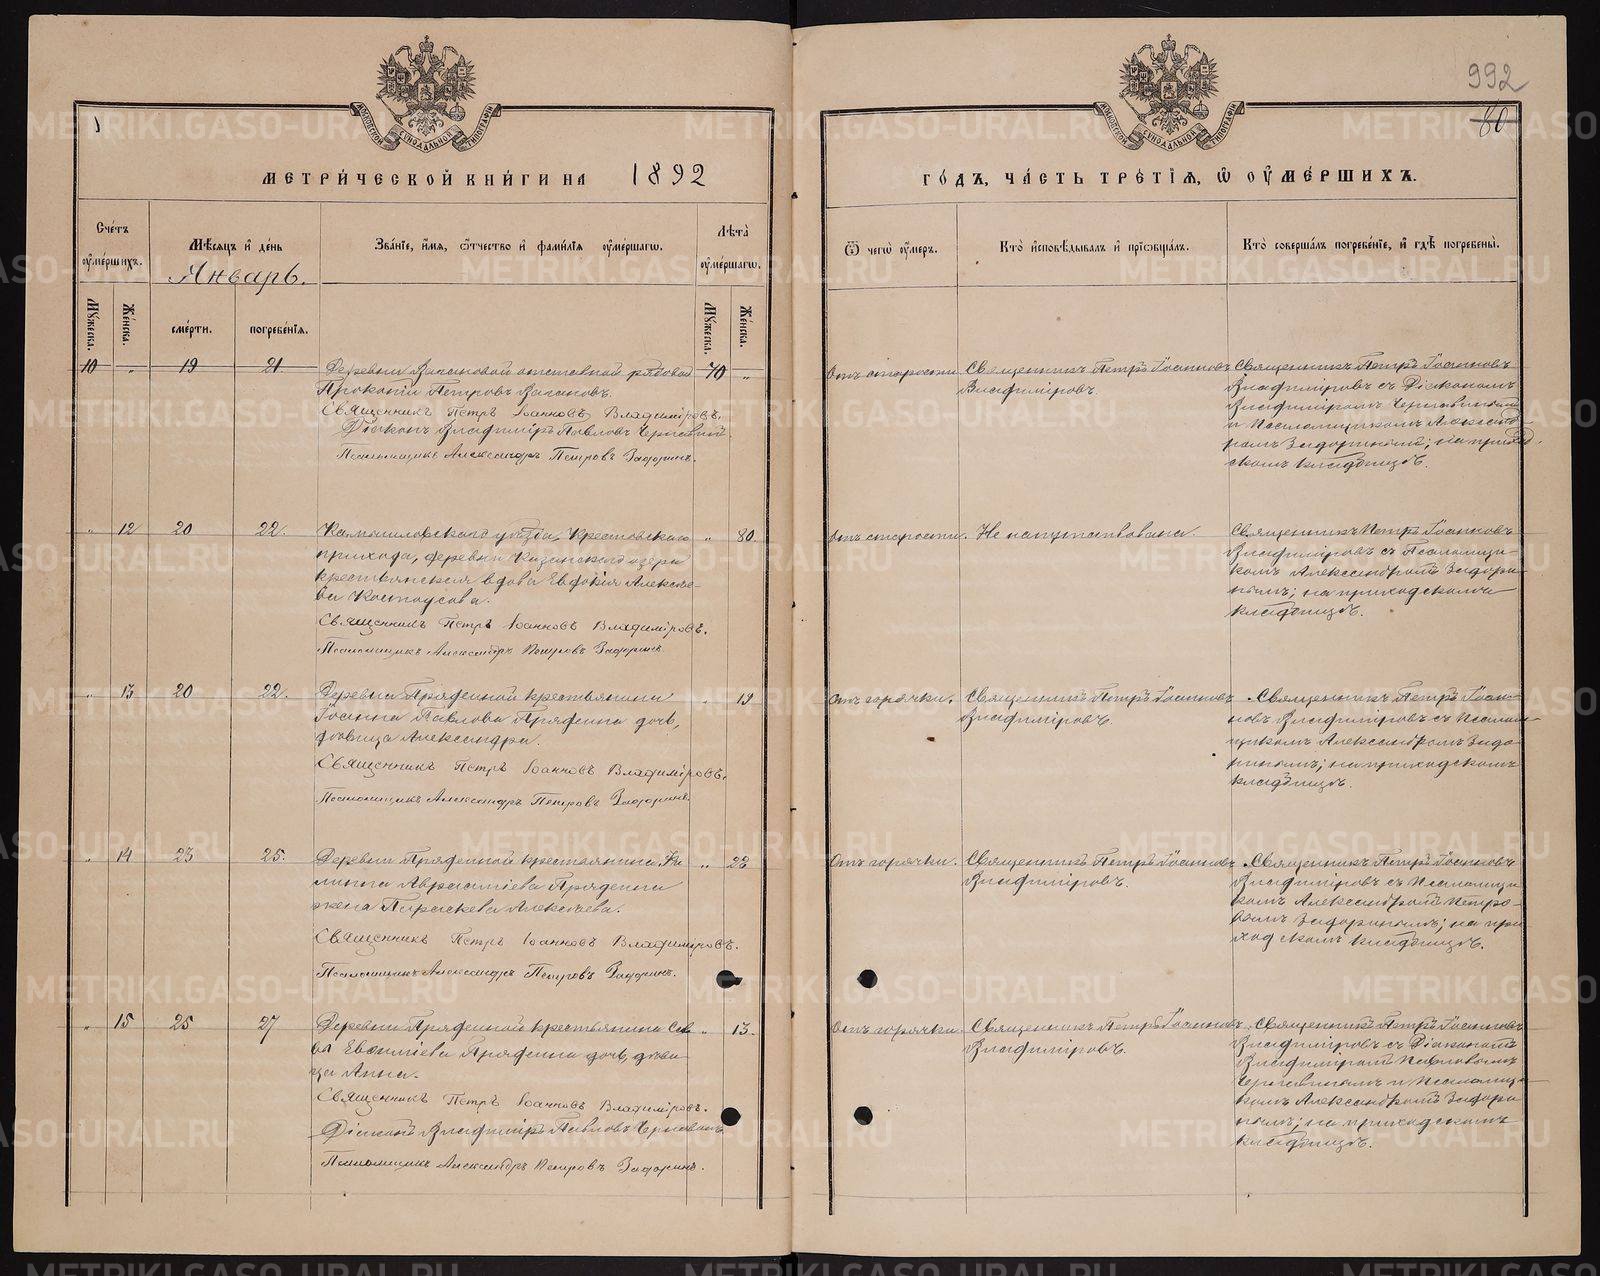 992
60
МЕТРИ́ЧЕСКОЙ КНИ́ГИ НА 1892
ГО́ДЪ, ЧА́СТЬ ТРЕ́ТІѦ, Ѿ ОУМЕ́РШИХЪ.
Сче́тъ оуме́ршихъ.
Мѣ́сѧцъ и де́нь
Январь.
Зва́нїе, и́мѧ, ѻ҆́тчество и фами́лїѧ оуме́ршагѡ.
Лѣ́та оуме́ршагѡ.
Ѿ чегѡ̀ оу́меръ.
Кто̀ и҆сповѣ́дывалъ и прїѡбща́лъ.
Кто̀ соверша́лъ погребе́нїе, и гдѣ̀ погребены̀.
Мꙋ́жеска.
Же́нска.
сме́рти.
погребе́нїѧ.
Мꙋ́жеска.
Же́нска.
10 „ 19 21. Деревни отставной рядовой 70 „
Прокопій Петровъ
Священникъ Петръ Іоанновъ Владиміровъ.
Діаконъ Владиміръ Павловъ
Псаломщикъ Александръ Петровъ Задоринъ.
Отъ старости
Священникъ Петръ Іоанновъ
Владиміровъ.
Священникъ Петръ Іоанновъ
Владиміровъ съ Діакономъ
Владиміромъ Чернавинымъ
и Псаломщикомъ Александ-
ромъ Задоринымъ; на приход-
скомъ кладбищѣ.
„ 12 20 22. Камышловскаго уѣзда, Крестовскаго „ 80.
прихода, деревни Казанскаго озера
крестьянская вдова Евдокія Алексѣе-
ва
Священникъ Петръ Іоанновъ Владиміровъ.
Псаломщикъ Александръ Петровъ Задоринъ
отъ старости.
Не напутствована.
Священникъ Петръ Іоанновъ
Владиміровъ съ Псаломщи-
комъ Александромъ Задори-
нымъ; на приходскомъ
кладбищѣ.
„ 13 20 22. Деревни Пряденной крестьянина „ 19
Іоанна Павлова Прядеина дочь,
дѣвица Александра.
Священникъ Петръ Іоанновъ Владиміровъ.
Псаломщикъ Александръ Петровъ Задоринъ
Отъ горячки.
Священникъ Петръ Іоанновъ
Владиміровъ.
Священникъ Петръ Іоан-
новъ Владиміровъ съ Псалом-
щикомъ Александромъ Задо-
ринымъ; на приходскомъ
кладбищѣ.
„ 14 23 25. Деревни Пряденной крестьянина Фи- „ 22
липпа Авраамиева Прядеина
жена Параскева Алексѣева.
Священникъ Петръ Іоанновъ Владиміровъ.
Псаломщикъ Александръ Петровъ Задоринъ.
Отъ горячки.
Священникъ Петръ Іоанновъ
Владиміровъ.
Священникъ Петръ Іоанновъ
Владиміровъ съ Псаломщи-
комъ Александромъ Петро-
вымъ Задоринымъ; на при-
ходскомъ кладбищѣ.
„ 15 25 27 Деревни Пряденной крестьянина Сав- „ 13.
ва Евѳиміева Прядеина дочь, дѣви-
ца Анна.
Священникъ Петръ Іоанновъ Владиміровъ.
Діаконъ Владиміръ Павловъ Чернавинъ
Псаломщикъ Александръ Петровъ Задоринъ.
Отъ горячки.
Священникъ Петръ Іоанновъ
Владиміровъ.
Священникъ Петръ Іоанновъ
Владиміровъ съ Діакономъ
Владиміромъ Павловымъ
Чернавинымъ и Псаломщи-
комъ Александромъ Задори-
нымъ; на приходскомъ
кладбищѣ.
METRIKI.GASO-URAL.RU